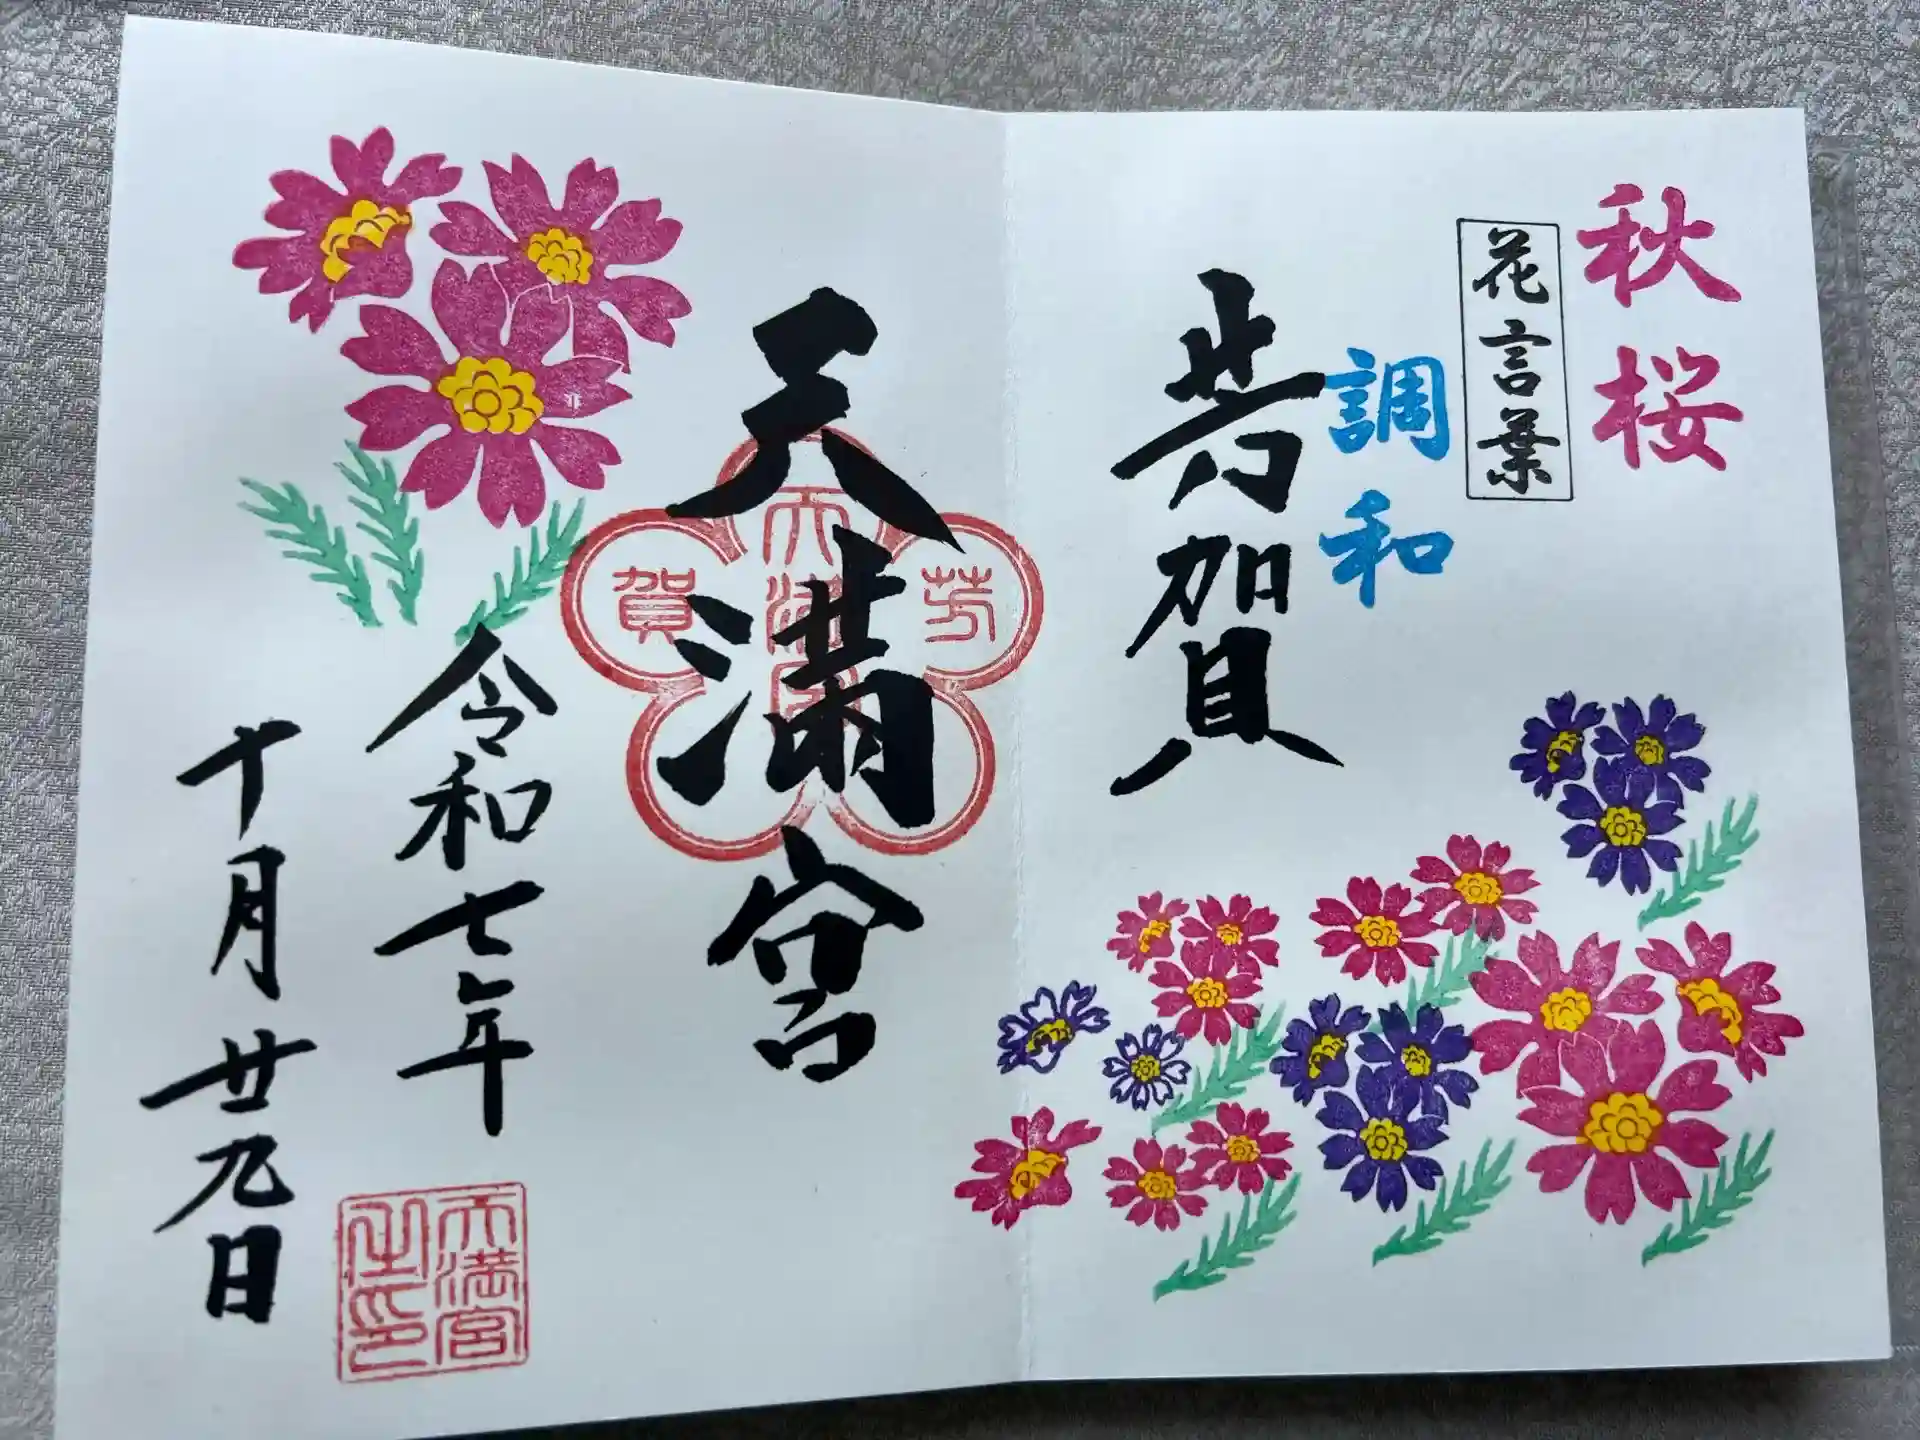 秋桜
花言葉
調和
芳賀
天満宮
天満宮
芳
賀
令和七年
十月廿九日
天満宮
之印